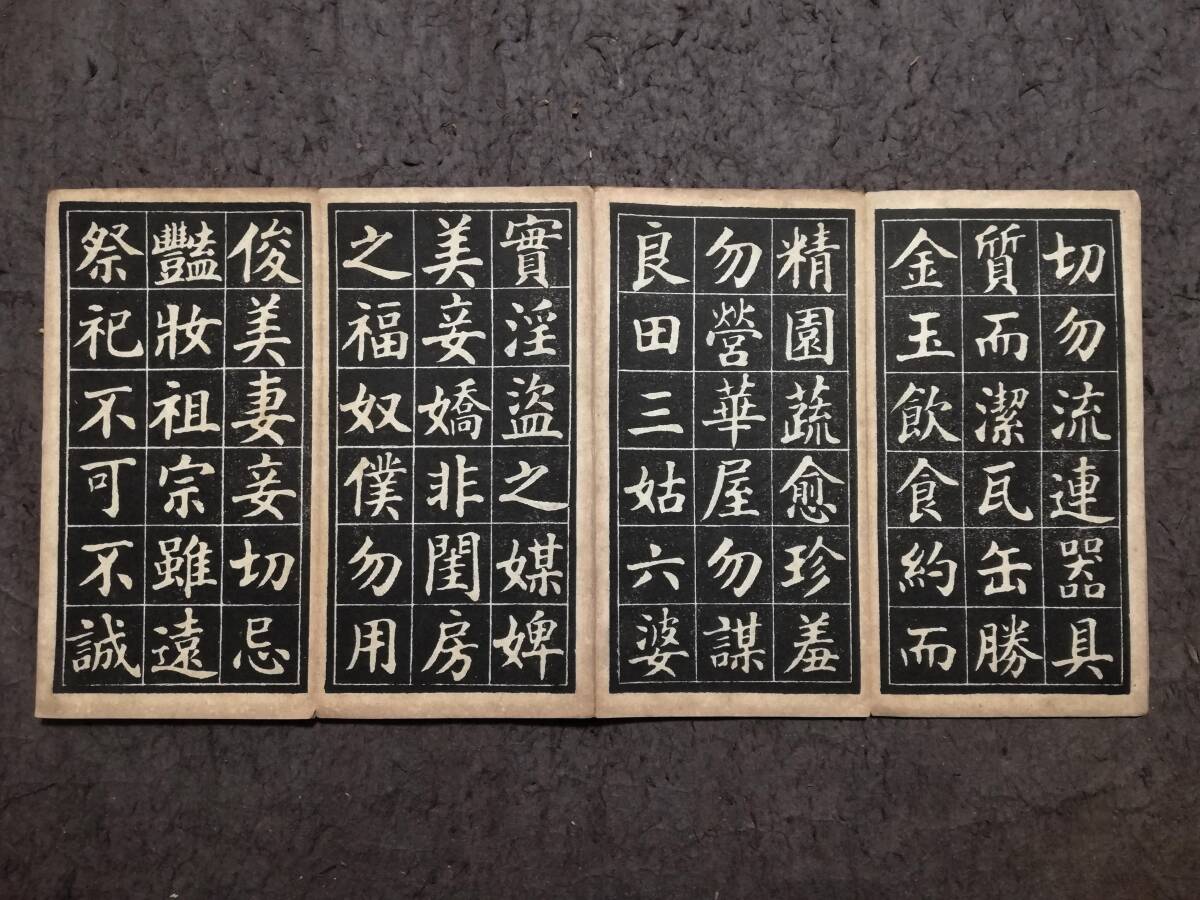 切勿流連器具
質而潔瓦缶勝
金玉飲食約而
精園蔬愈珍羞
勿營華屋勿謀
良田三姑六婆
實淫盜之媒婢
美妾嬌非閨房
之福奴僕勿用
俊美妻妾切忌
豔妝祖宗雖遠
祭祀不可不誠